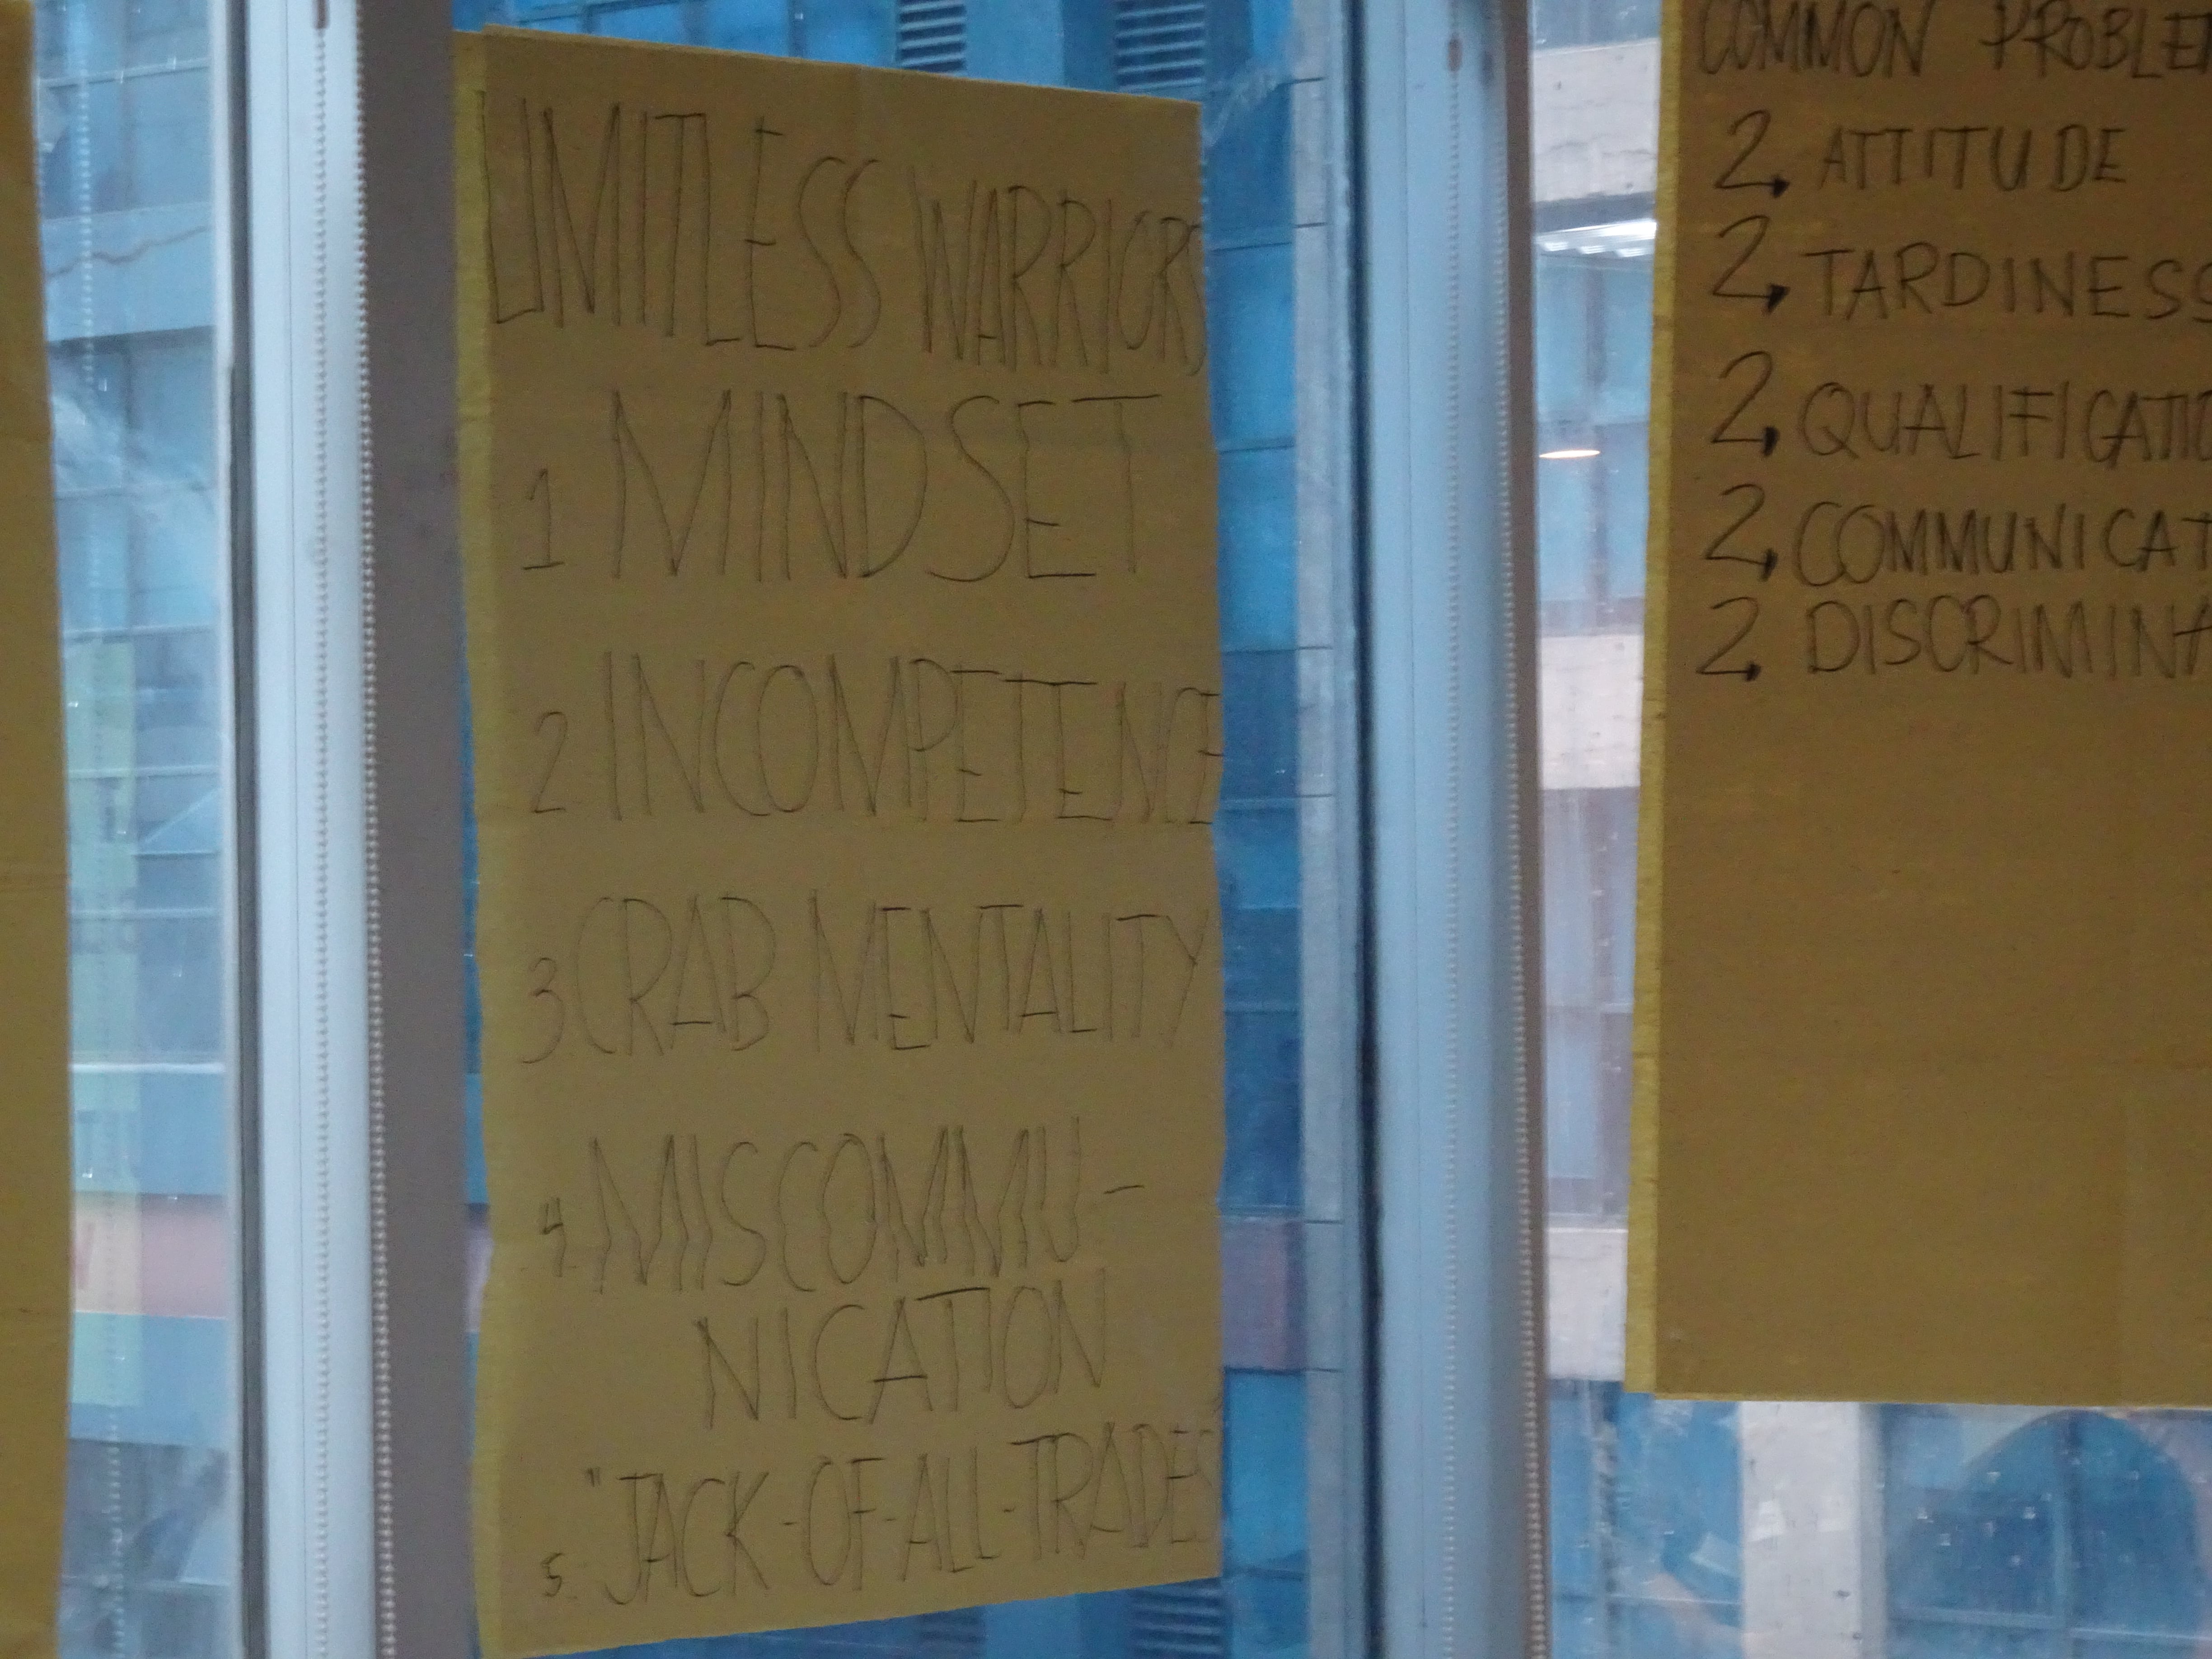 LIMITLESS WARRIORS
1 MINDSET
2. INCOMPETENCE
3 CRAB MENTALITY
4. MISCOMMU-
NICATION
5. "JACK-OF-ALL-TRADES
COMMON PROBLE
ATTITUDE
TARDINESS
QUALIFICATIO
COMMUNICAT
DISCRIMINA